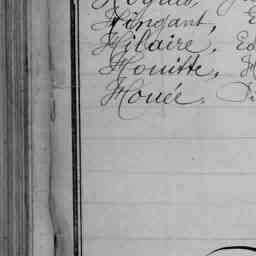 Hingant,
Hilaire, Ed
Houitte, H
Houée.